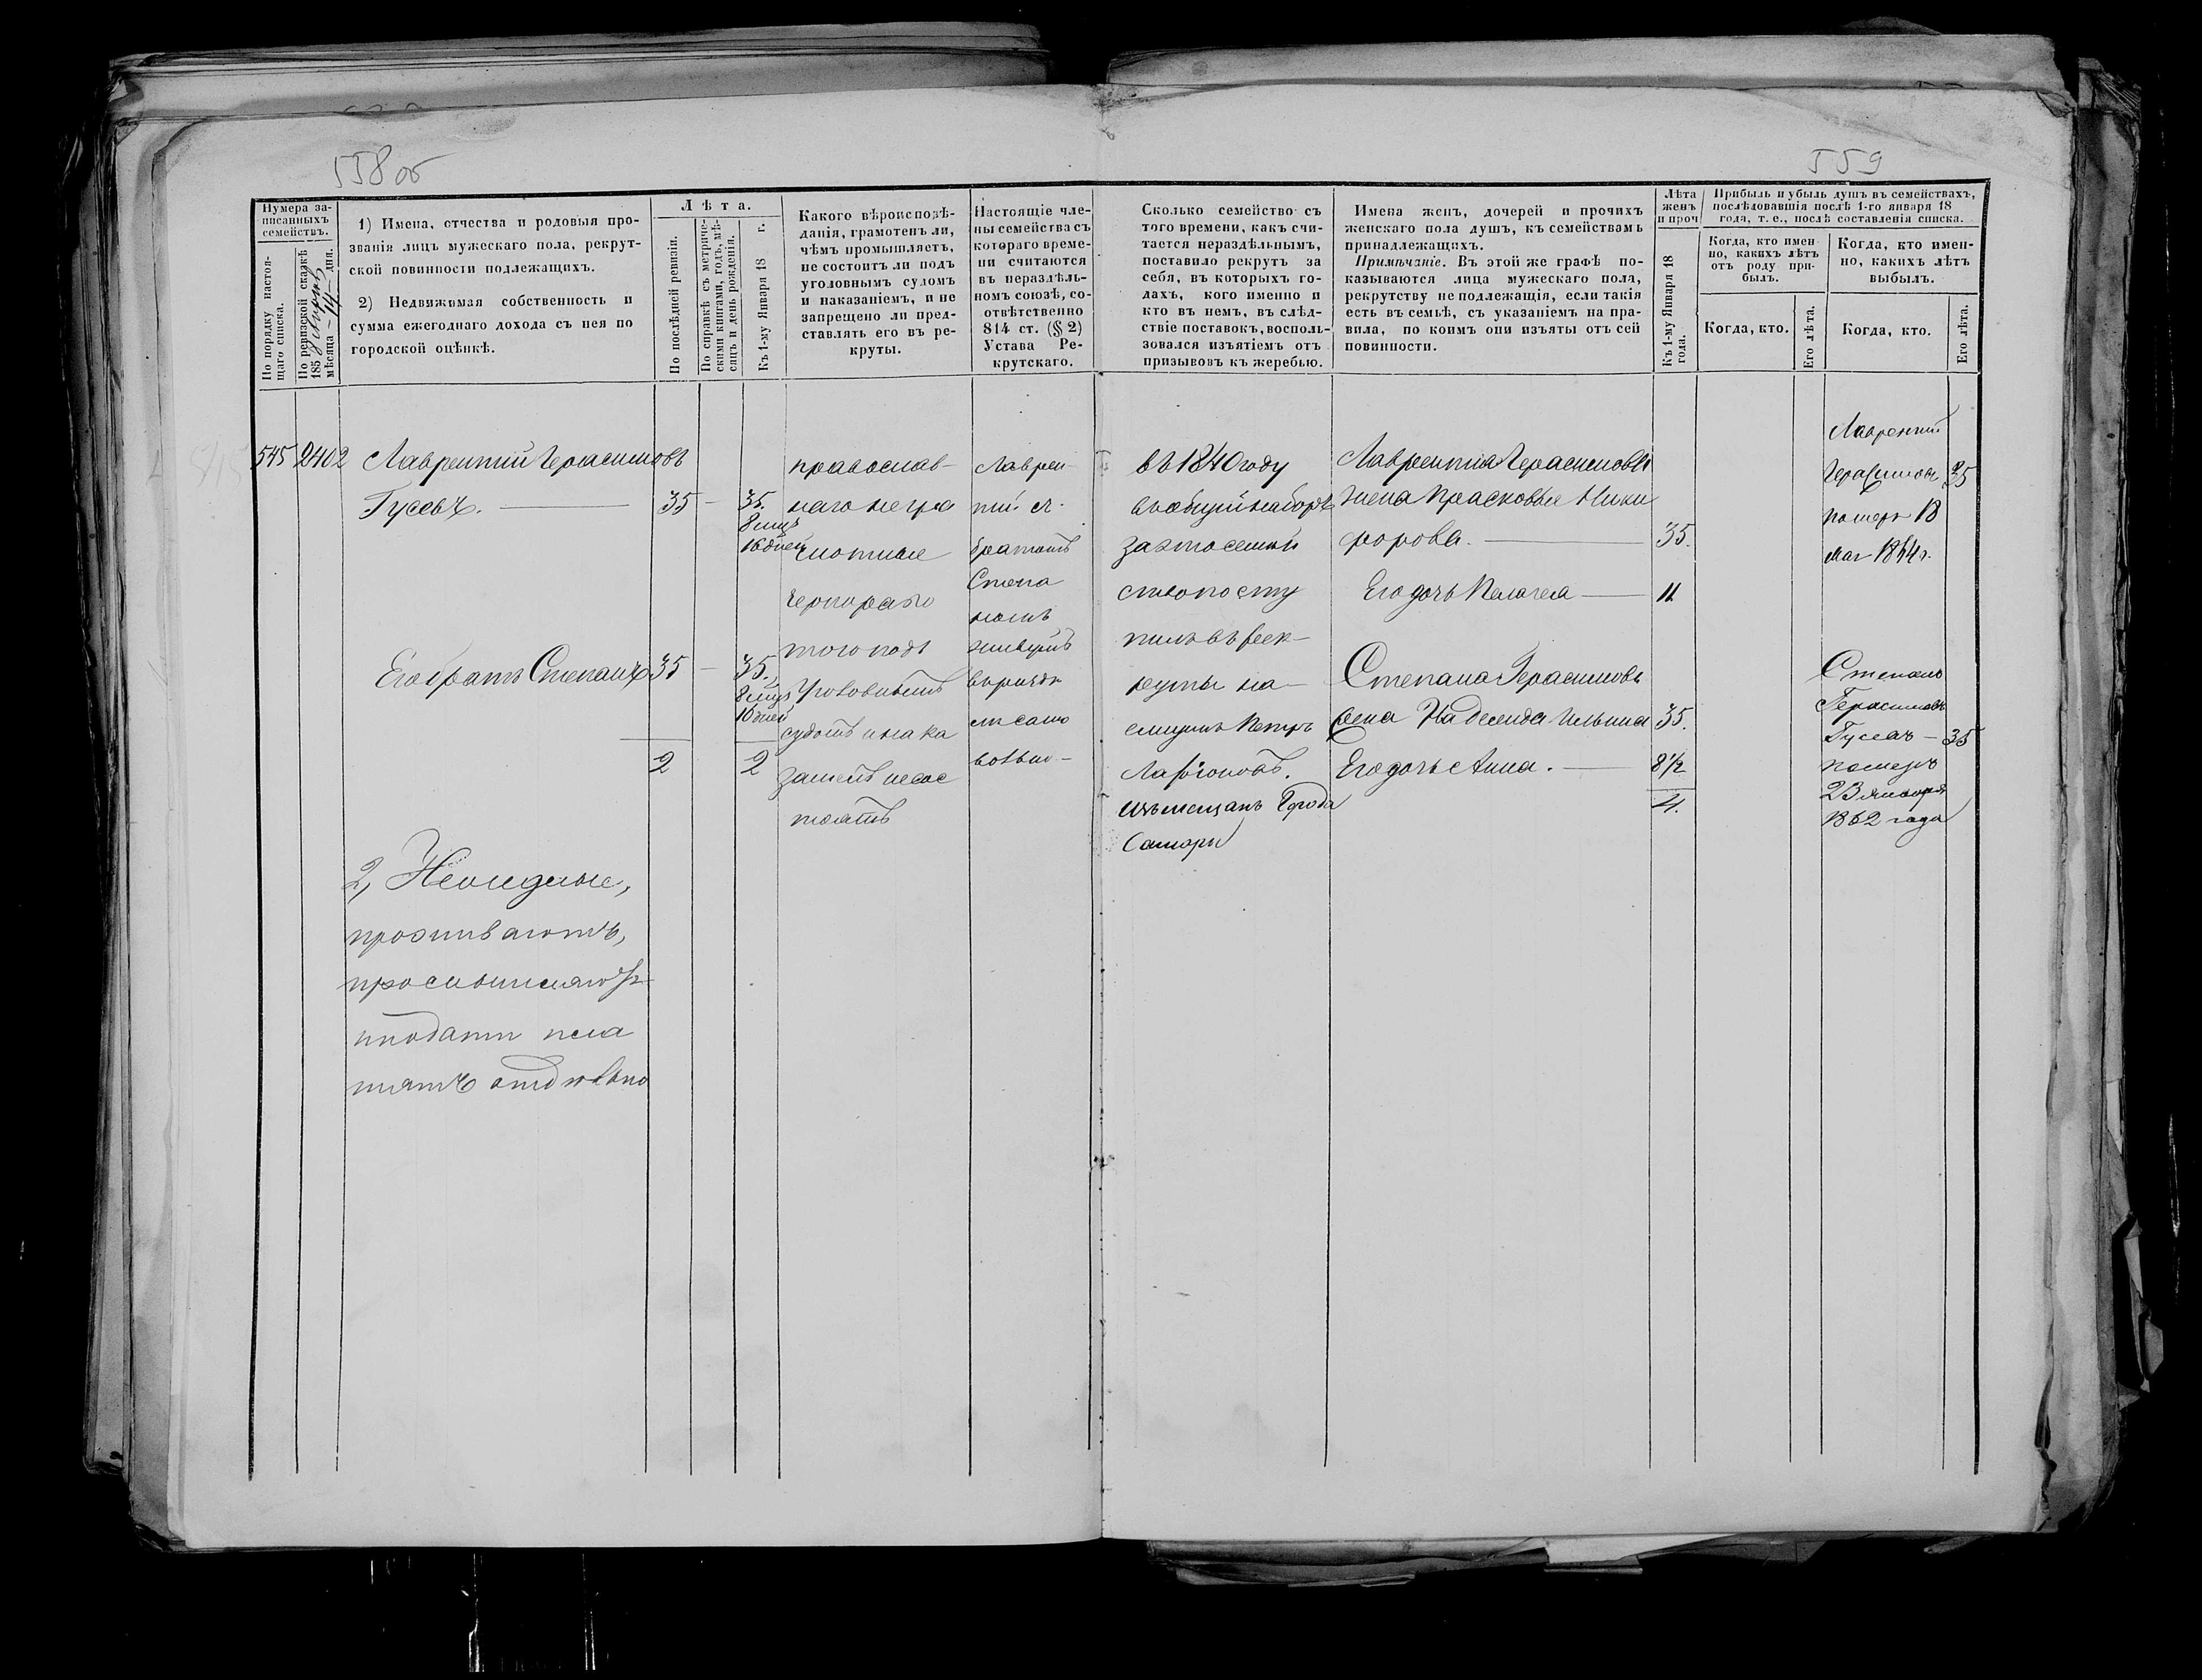 558 об
559
Нумера за-
писанныхъ
семействъ.
По порядку настоя-
щаго списка.
По ревизской сказкѣ
185
мѣсяца 14 дня.
1) Имена, отчества и родовыя про-
званія лицъ мужескаго пола, рекрут-
ской повинности подлежащихъ.
2) Недвижимая собственность и
сумма ежегоднаго дохода съ нея по
городской оцѣнкѣ.
Лѣта.
По послѣдней ревизіи.
По справкѣ съ метриче-
скими книгами, годъ, мѣ-
сяцъ и день рожденія.
Къ 1-му Января 18 г.
Какого вѣроисповѣ-
данія, грамотенъ ли,
чѣмъ промышляетъ,
не состоитъ ли подъ
уголовнымъ судомъ
и наказаніемъ, и не
запрещено ли пред-
ставлять его въ ре-
круты.
Настоящіе чле-
ны семейства съ
котораго време-
ни считаются
въ нераздѣль-
номъ союзѣ, со-
отвѣтственно
814 ст. (§ 2)
Устава Ре-
крутскаго.
Сколько семейство съ
того времени, какъ счи-
тается нераздѣльнымъ,
поставило рекрутъ за
себя, въ которыхъ го-
дахъ, кого именно и
кто въ немъ, въ слѣд-
ствіе поставокъ, восполь-
зовался изъятіемъ отъ
призывовъ къ жеребью.
Имена женъ, дочерей и прочихъ
женскаго пола душъ, къ семействамъ
принадлежащихъ.
Примѣчаніе. Въ этой же графѣ по-
казываются лица мужескаго пола,
рекрутству не подлежащія, если такія
есть въ семьѣ, съ указаніемъ на пра-
вила, по коимъ они изъяты отъ сей
повинности.
Лѣта
женъ
и проч
Къ 1-му Января 18
года.
Прибыль и убыль душъ въ семействахъ,
послѣдовавшія послѣ 1-го января 18
года, т. е., послѣ составленія списка.
Когда, кто имен-
но, какихъ лѣтъ
отъ роду при-
былъ.
Когда, кто.
Его лѣта.
Когда, кто имен-
но, какихъ лѣтъ
выбылъ.
Когда, кто.
Его лѣта.
545 2402 Лаврентий Герасимовъ
Гусевъ. 35 — 35.
8 мцъ
16 дней
Его братъ Степанъ 35 — 35.
8 мцъ
16 дней
2 2
2,
проживаютъ,
подати пла
тятъ
православ-
наго негра
мотные
подъ
Уголовнымъ
судомъ и нака
заніемъ несос
тоятъ
Лаврен-
тій съ
братомъ
Степа
номъ
живутъ
въ 1840 году
въ общій наборъ
за это семей
ство посту
пилъ въ рек-
руты на-
Петръ
изъ мещанъ Города
Самары
Лаврентия Герасимова
жена Прасковья Ники
форова. 35.
Его дочь Пелагея 11
Степана Герасимова
жена Надежда Ильина 35.
Его дочь Анна. 8½
4.
Лаврентий
Герасимовъ 35
померъ 18
мая 1854 г.
Степанъ
Герасимовъ
Гусевъ — 35
померъ
23 января
1862 года